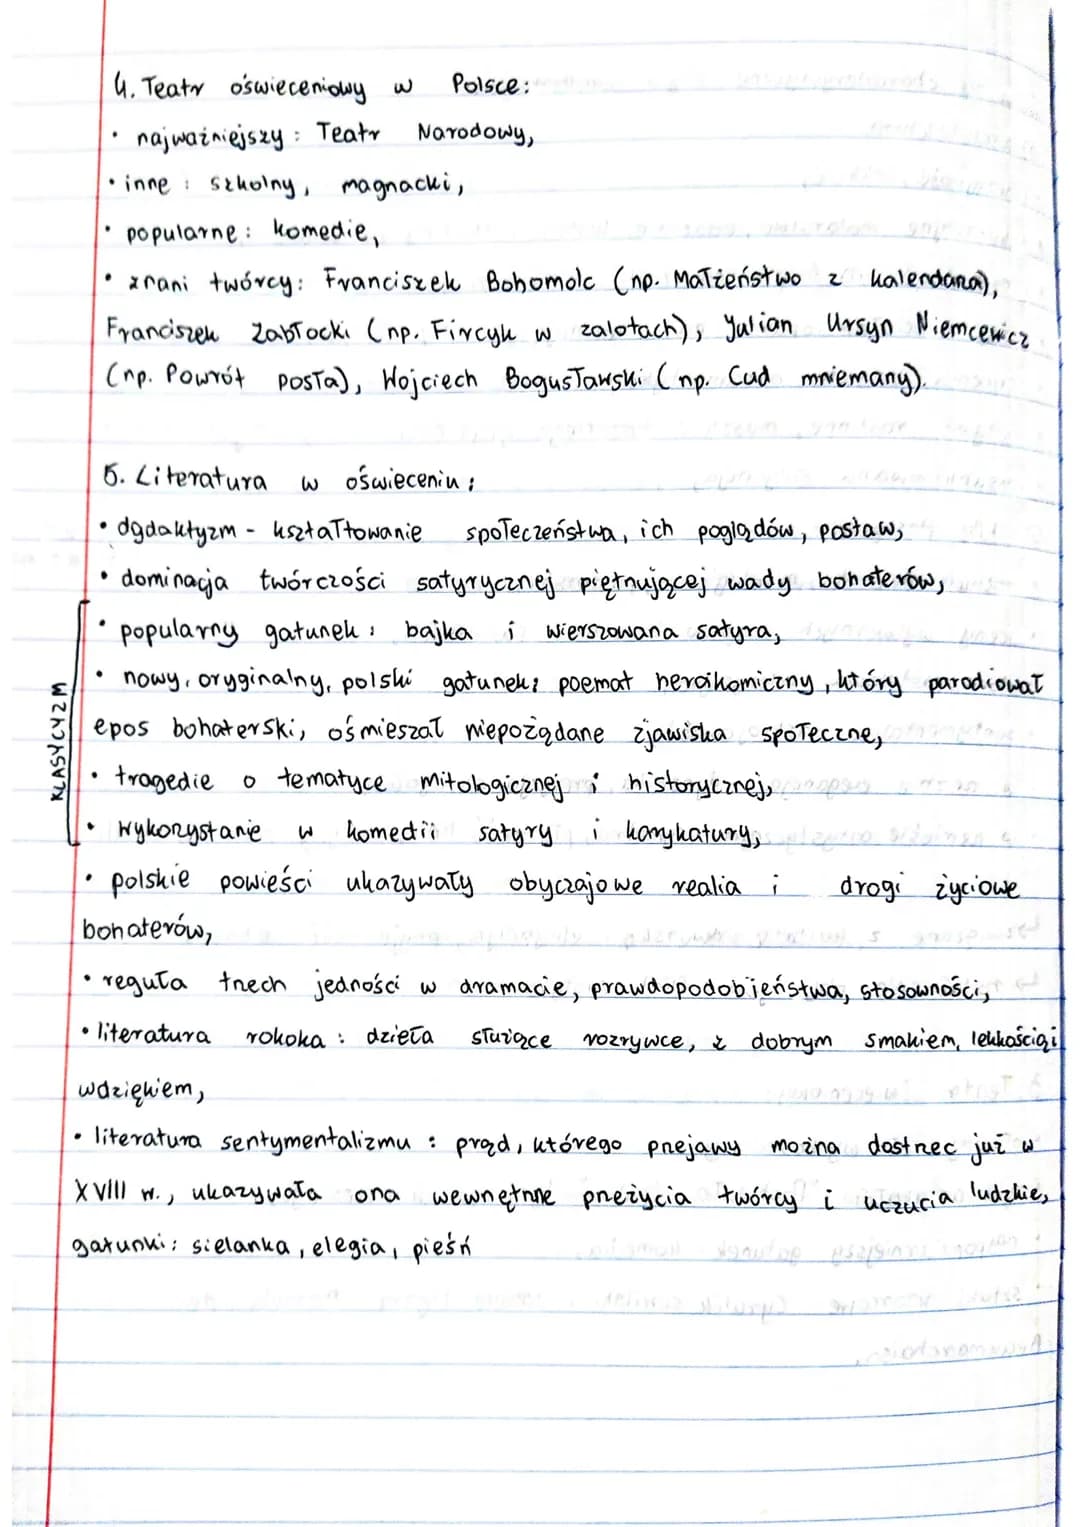 4. Teatr oświeceniowy w Polsce:
• najważniejszy: Teatr Narodowy,
• inne: szkolny, magnacki,
• popularne: komedie,
• znani twórcy: Franciszek Bohomolc (np. Małżeństwo z kalendarza),
Franciszek Zabłocki (np. Fircyk w zalotach), Julian Ursyn Niemcewicz
(np. Powrót posła), Wojciech Bogusławski (np. Cud mniemany).
5. Literatura w oświeceniu:
• dydaktyzm - kształtowanie społeczeństwa, ich poglądów, postaw,
• dominacja twórczości satyrycznej piętnującej wady bohaterów,
• popularny gatunek: bajka i wierszowana satyra,
• nowy, oryginalny, polski gatunek: poemat heroikomiczny, który parodiował
epos bohaterski, ośmieszał niepożądane zjawiska społeczne,
• tragedie o tematyce mitologicznej i historycznej,
• wykorzystanie w komedii satyry i karykatury,
KLASYCYZM
• polskie powieści ukazywały obyczajowe realia i drogi życiowe
bohaterów,
• reguła trzech jedności w dramacie, prawdopodobieństwa, stosowności,
• literatura rokoka: dzieła służące rozrywce, z dobrym smakiem, lekkością i
wdziękiem,
• literatura sentymentalizmu: prąd, którego przejawy można dostrzec już w
XVIII w., ukazywała ona wewnętrzne przeżycia twórcy i uczucia ludzkie,
gatunki: sielanka, elegia, pieśń